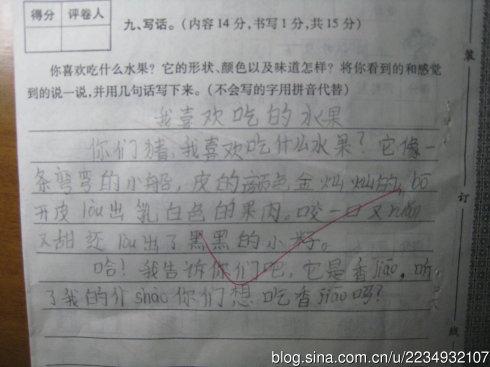 得分 评卷人
九、写话。(内容14分,书写1分,共15分)
你喜欢吃什么水果?它的形状、颜色以及味道怎样?将你看到的和感觉
到的说一说,并用几句话写下来。(不会写的字用拼音代替)
我喜欢吃的水果
你们猜,我喜欢吃什么水果?它像一
条弯弯的小船,皮的颜色金灿灿的,bō
开皮lòu出乳白色的果肉。咬一口又
又甜还lòu出了黑黑的小籽。
哈!我告诉你们吧,它是香jiāo。听
了我的介shào你们想吃香jiāo吗?
装
订
线
blog.sina.com.cn/u/2234932107